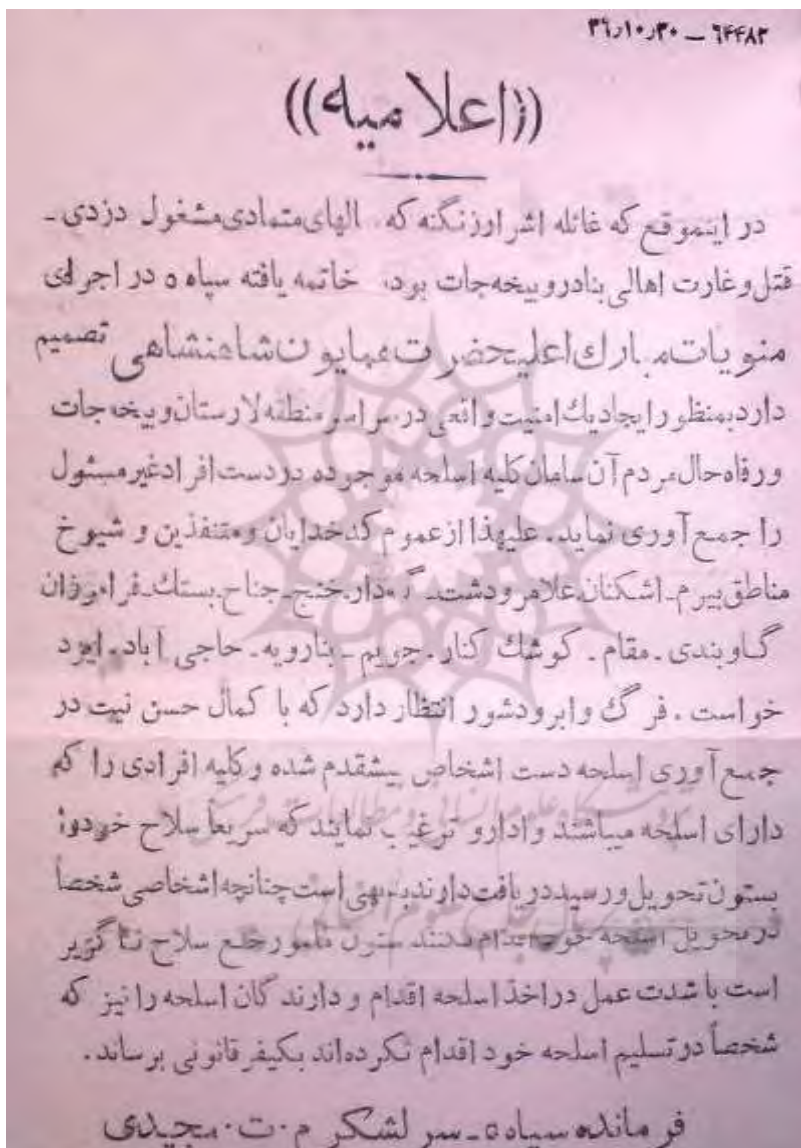 ۳۶٫۱۰٫۳۰ — ۶۴۴۸۲
((اعلامیه))
در اینموقع که غائله اشرار زنگنه که الهای متمادی مشغول دزدی ـ
قتل و غارت اهالی بنادر و بیخه جات بود، خاتمه یافته سپاه ۵ در اجرای
منویات مبارك اعلیحضرت همایون شاهنشاهی تصمیم
دارد بمنظور ایجاد یك امنیت واقعی در سراسر منطقه لارستان و بیخه جات
و رفاه حال مردم آن سامان کلیه اسلحه موجوده در دست افراد غیر مسئول
را جمع آوری نماید. علیهذا از عموم کدخدایان و متنفذین و شیوخ
مناطق بیرم ـ اشکنان علامرودشت ـ گله‌دار ـ خنج ـ جناح ـ بستك ـ فرامرزان
گاوبندی ـ مقام ـ کوشك کنار ـ جویم ـ بنارویه ـ حاجی آباد ـ ایزد
خواست . فرگ وابرودشور انتظار دارد که با کمال حسن نیت در
جمع آوری اسلحه دست اشخاص پیشقدم شده و کلیه افرادی را که
دارای اسلحه میباشند وادار و ترغیب نمایند که سریعاً سلاح خود را
بستون تحویل و رسید دریافت دارند بدیهی است چنانچه اشخاصی شخصاً
در تحویل اسلحه خود اقدام نکنند ستون مأمور خلع سلاح ناگزیر
است با شدت عمل در اخذ اسلحه اقدام و دارندگان اسلحه را نیز که
شخصاً در تسلیم اسلحه خود اقدام نکرده‌اند بکیفر قانونی برساند.
فرمانده سپاه ۵ ـ سرلشکر م ٠ ت ٠ مجیدی
پژوهشگاه علوم انسانی و مطالعات فرهنگی
پرتال جامع علوم انسانی